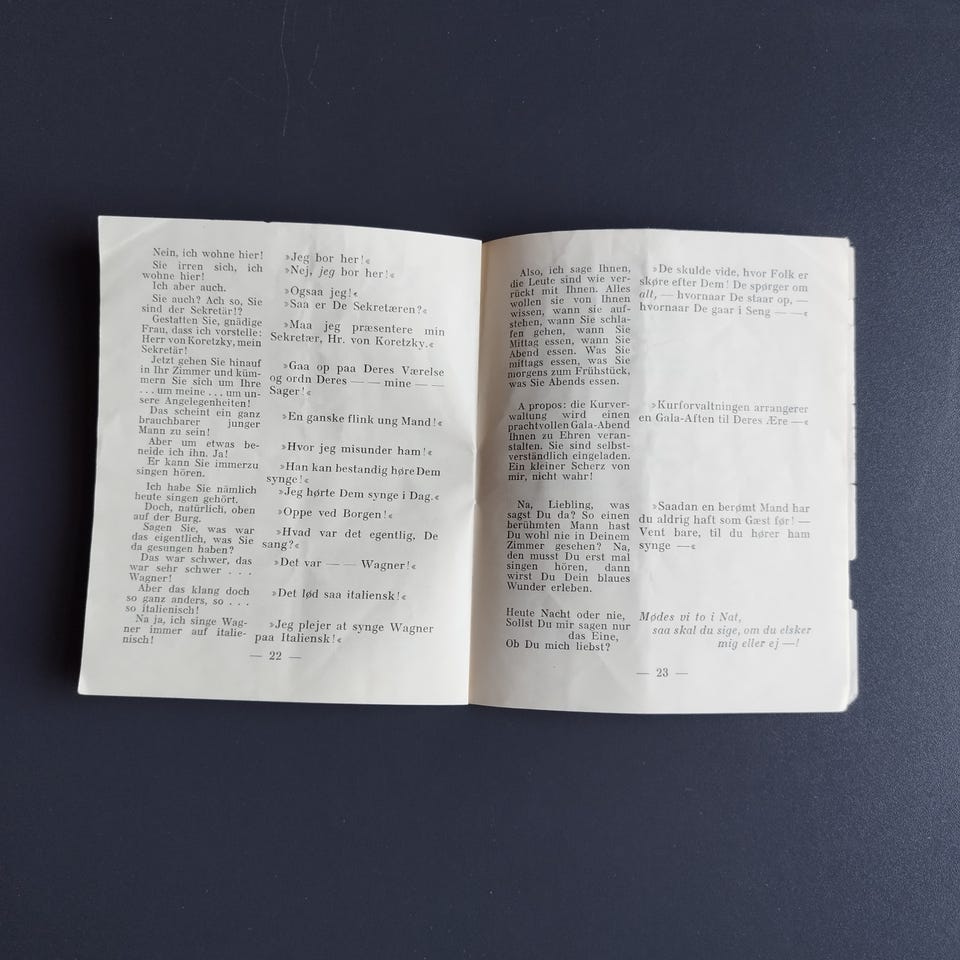 Nein, ich wohne hier!
Sie irren sich, ich
wohne hier!
Ich aber auch.
Sie auch? Ach so, Sie
sind der Sekretär!?
Gestatten Sie, gnädige
Frau, dass ich vorstelle:
Herr von Koretzky, mein
Sekretär!
Jetzt gehen Sie hinauf
in Ihr Zimmer und küm-
mern Sie sich um Ihre
. . . um meine . . . um un-
sere Angelegenheiten!
Das scheint ein ganz
brauchbarer junger
Mann zu sein!
Aber um etwas be-
neide ich ihn. Ja!
Er kann Sie immerzu
singen hören.
Ich habe Sie nämlich
heute singen gehört.
Doch, natürlich, oben
auf der Burg.
Sagen Sie, was war
das eigentlich, was Sie
da gesungen haben?
Das war schwer, das
war sehr schwer . . .
Wagner!
Aber das klang doch
so ganz anders, so . . .
so italienisch!
Na ja, ich singe Wag-
ner immer auf italie-
nisch!
»Jeg bor her!«
»Nej, jeg bor her!«
»Ogsaa jeg!«
»Saa er De Sekretæren?«
»Maa jeg præsentere min
Sekretær, Hr. von Koretzky.«
»Gaa op paa Deres Værelse
og ordn Deres — — mine — —
Sager!«
»En ganske flink ung Mand!«
»Hvor jeg misunder ham!«
»Han kan bestandig høre Dem
synge!«
»Jeg hørte Dem synge i Dag.«
»Oppe ved Borgen!«
»Hvad var det egentlig, De
sang?«
»Det var — — Wagner!«
»Det lød saa italiensk!«
»Jeg plejer at synge Wagner
paa Italiensk!«
— 22 —
Also, ich sage Ihnen,
die Leute sind wie ver-
rückt mit Ihnen. Alles
wollen sie von Ihnen
wissen, wann sie auf-
stehen, wann Sie schla-
fen gehen, wann Sie
Mittag essen, wann Sie
Abend essen. Was Sie
mittags essen, was Sie
morgens zum Frühstück,
was Sie Abends essen.
A propos: die Kurver-
waltung wird einen
prachtvollen Gala-Abend
Ihnen zu Ehren veran-
stalten. Sie sind selbst-
verständlich eingeladen.
Ein kleiner Scherz von
mir, nicht wahr!
Na, Liebling, was
sagst Du da? So einen
berühmten Mann hast
Du wohl nie in Deinem
Zimmer gesehen? Na,
den musst Du erst mal
singen hören, dann
wirst Du Dein blaues
Wunder erleben.
Heute Nacht oder nie,
Sollst Du mir sagen nur
das Eine,
Ob Du mich liebst?
»De skulde vide, hvor Folk er
skøre efter Dem! De spørger om
alt, — hvornaar De staar op, —
hvornaar De gaar i Seng — —«
»Kurforvaltningen arrangerer
en Gala-Aften til Deres Ære —«
»Saadan en berømt Mand har
du aldrig haft som Gæst før! —
Vent bare, til du hører ham
synge —«
Mødes vi to i Nat,
saa skal du sige, om du elsker
mig eller ej —!
— 23 —